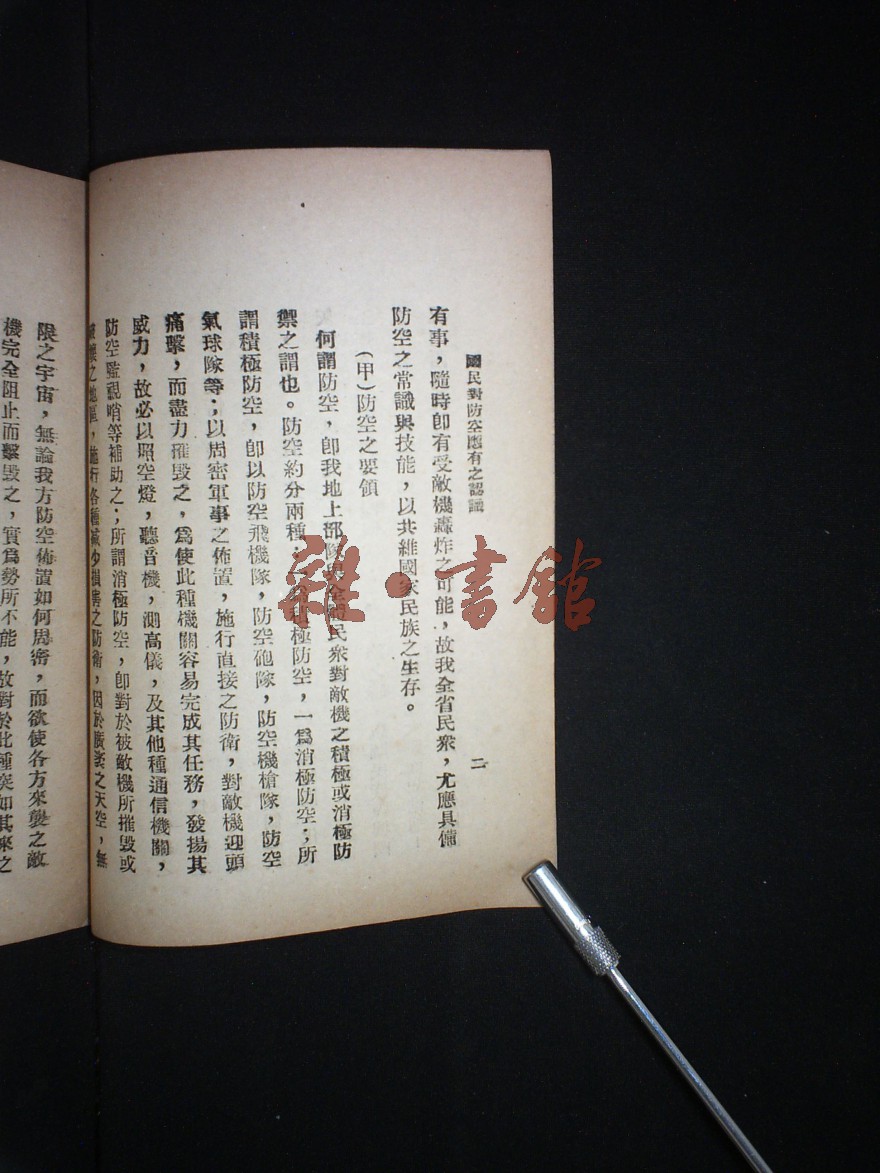 國民對防空應有之認識
二
有事，隨時卽有受敵機轟炸之可能，故我全省民衆，尤應具備
防空之常識與技能，以共維國家民族之生存。
（甲）防空之要領
何謂防空，卽我地上部隊與全體民衆對敵機之積極或消極防
禦之謂也。防空約分兩種：一爲積極防空，一爲消極防空；所
謂積極防空，卽以防空飛機隊，防空砲隊，防空機槍隊，防空
氣球隊等；以周密軍事之佈置，施行直接之防衛，對敵機迎頭
痛擊，而盡力摧毀之，爲使此種機關容易完成其任務，發揚其
威力，故必以照空燈，聽音機，測高儀，及其他種通信機關，
防空監視哨等補助之；所謂消極防空，卽對於被敵機所摧毀或
之地區，施行各種減少損害之防衛，因於廣漠之天空，無
限之宇宙，無論我方防空佈置如何周密，而欲使各方來襲之敵
機完全阻止而擊毀之，實爲勢所不能，故對於此種突如其來之
雜·書館